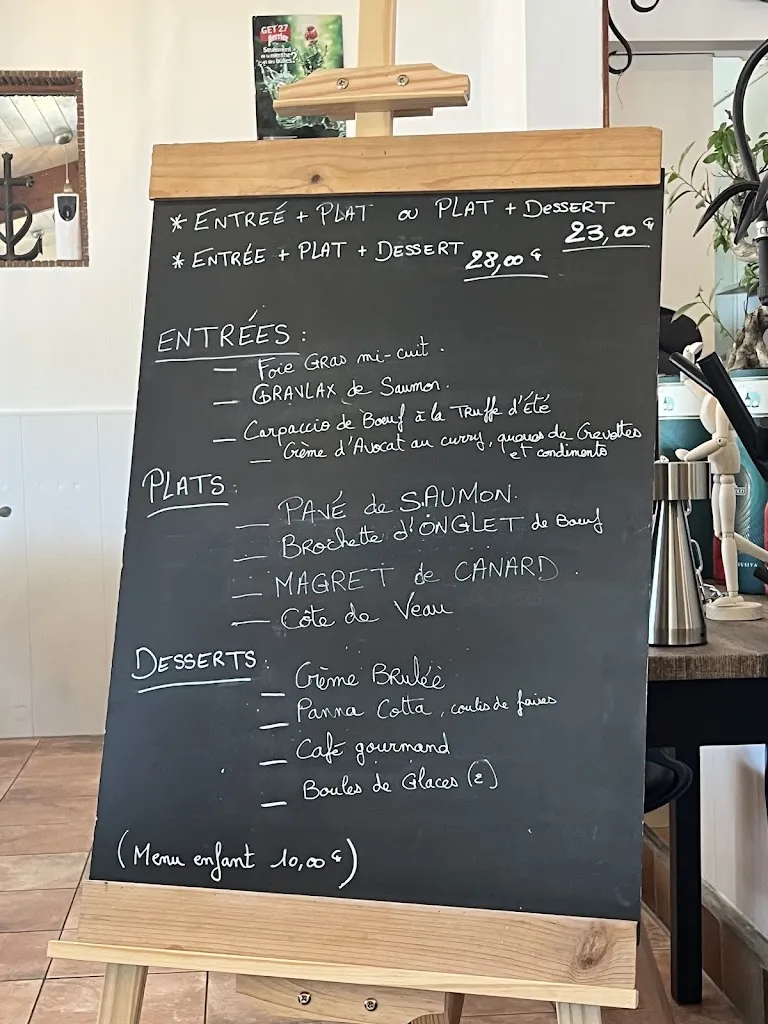 GET 27
Berries
Seulement
* ENTREÉ + PLAT ou PLAT + DESSERT
23,00 €
* ENTRÉE + PLAT + DESSERT 28,00 €
ENTRÉES :
— Foie GRAS mi-cuit.
— GRAVLAX de Saumon.
— Carpaccio de Bœuf à la TRUFFE d'ÉTÉ
— Crème d'Avocat au curry, queues de Crevettes
et condiments
PLATS :
— PAVÉ de SAUMON.
— BROCHETTE d'ONGLET de Bœuf
— MAGRET de CANARD.
— CÔTE DE VEAU
DESSERTS :
— Crème BRULÉÈ
— PANNA COTTA, coulis de
— Café gourmand
— Boules de Glaces (2)
(Menu enfant 10,00 €)